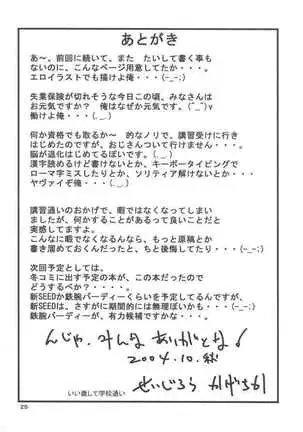 あとがき
あ~、前回に続いて、また たいして書く事も
ないのに、こんなページ用意してたか・・・。
エロイラストでも描けよ俺・・・(-_-;)
失業保険が切れそうな今日この頃、みなさんは
お元気ですか? 俺はなぜか元気です。(^_^)v
働けよ俺・・・(-_-;)
何か資格でも取るか~ 的なノリで、講習受けに行き
はじめたのですが、おじさんついて行けません・・・。
脳が退化はじめてるぽいです。(-_-;)
漢字読めるけど書けないとか、キーボータイピングで
ローマ字ミスしたりとか、ソリティア解けないとか・・・
ヤヴァイぞ俺・・・(-_-;)
講習通いのおかげで、暇ではなくなってしまい
ましたが、何かすることがあるって良いことだと
実感してますよ。
こんなに暇でなくなるんなら、もっと原稿とか
書き溜めておくんだったと、ちと後悔してたり・・・(-_-;)
次回予定としては、
冬コミに出す予定の本が、この本だったので
どうするべか?・・・。
新SEEDか鉄腕バーディーくらいを予定してるんですが、
新SEEDは、さすがに期間的には無理ぽいかも・・・。
鉄腕バーディーが、有力候補ですかな・・・。
んじゃ、みんな ありがとな!
2004.10.秋
せいじろう かげちか
いい歳して学校通い
25